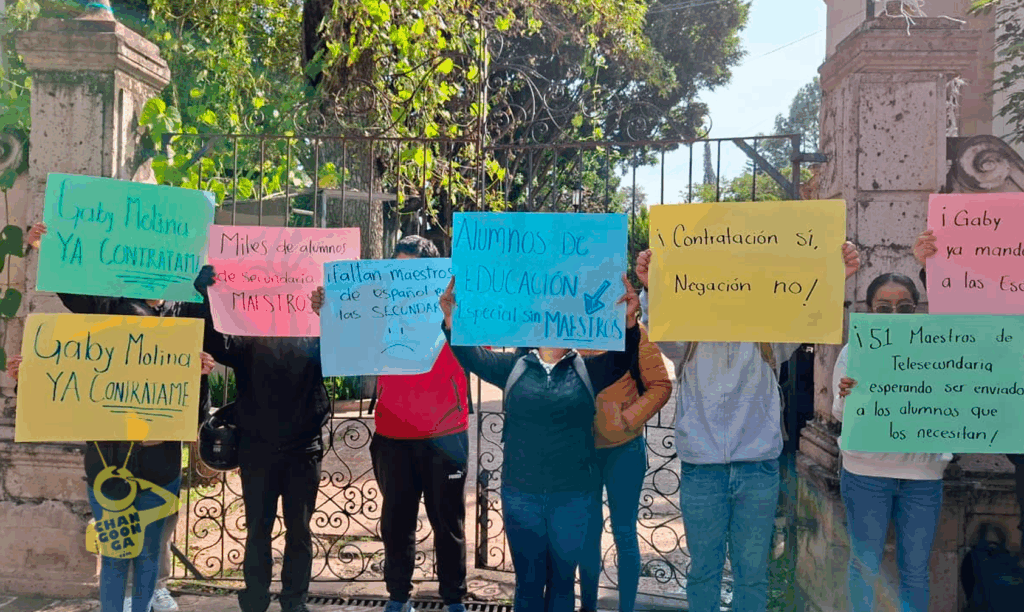 Gaby Molina
YA CONTRÁTAME
Gaby Molina
YA CONTRÁTAME
Miles de alumnos
de secundaria
MAESTROS
¡Faltan MAESTROS
de español en
las SECUNDAR
ALUMNOS DE
EDUCACIÓN
Especial sin MAESTROS
¡Contratación SÍ,
Negación no!
¡Gaby
ya mand
a las Esc
¡51 Maestros de
Telesecundaria
esperando ser enviados
a los alumnos que
los necesitan!
CHAN
GOON
GA